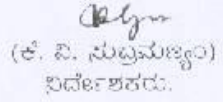 (ಕೆ. ವಿ. ಸುಬ್ರಮಣ್ಯಂ)
ನಿರ್ದೇಶಕರು.